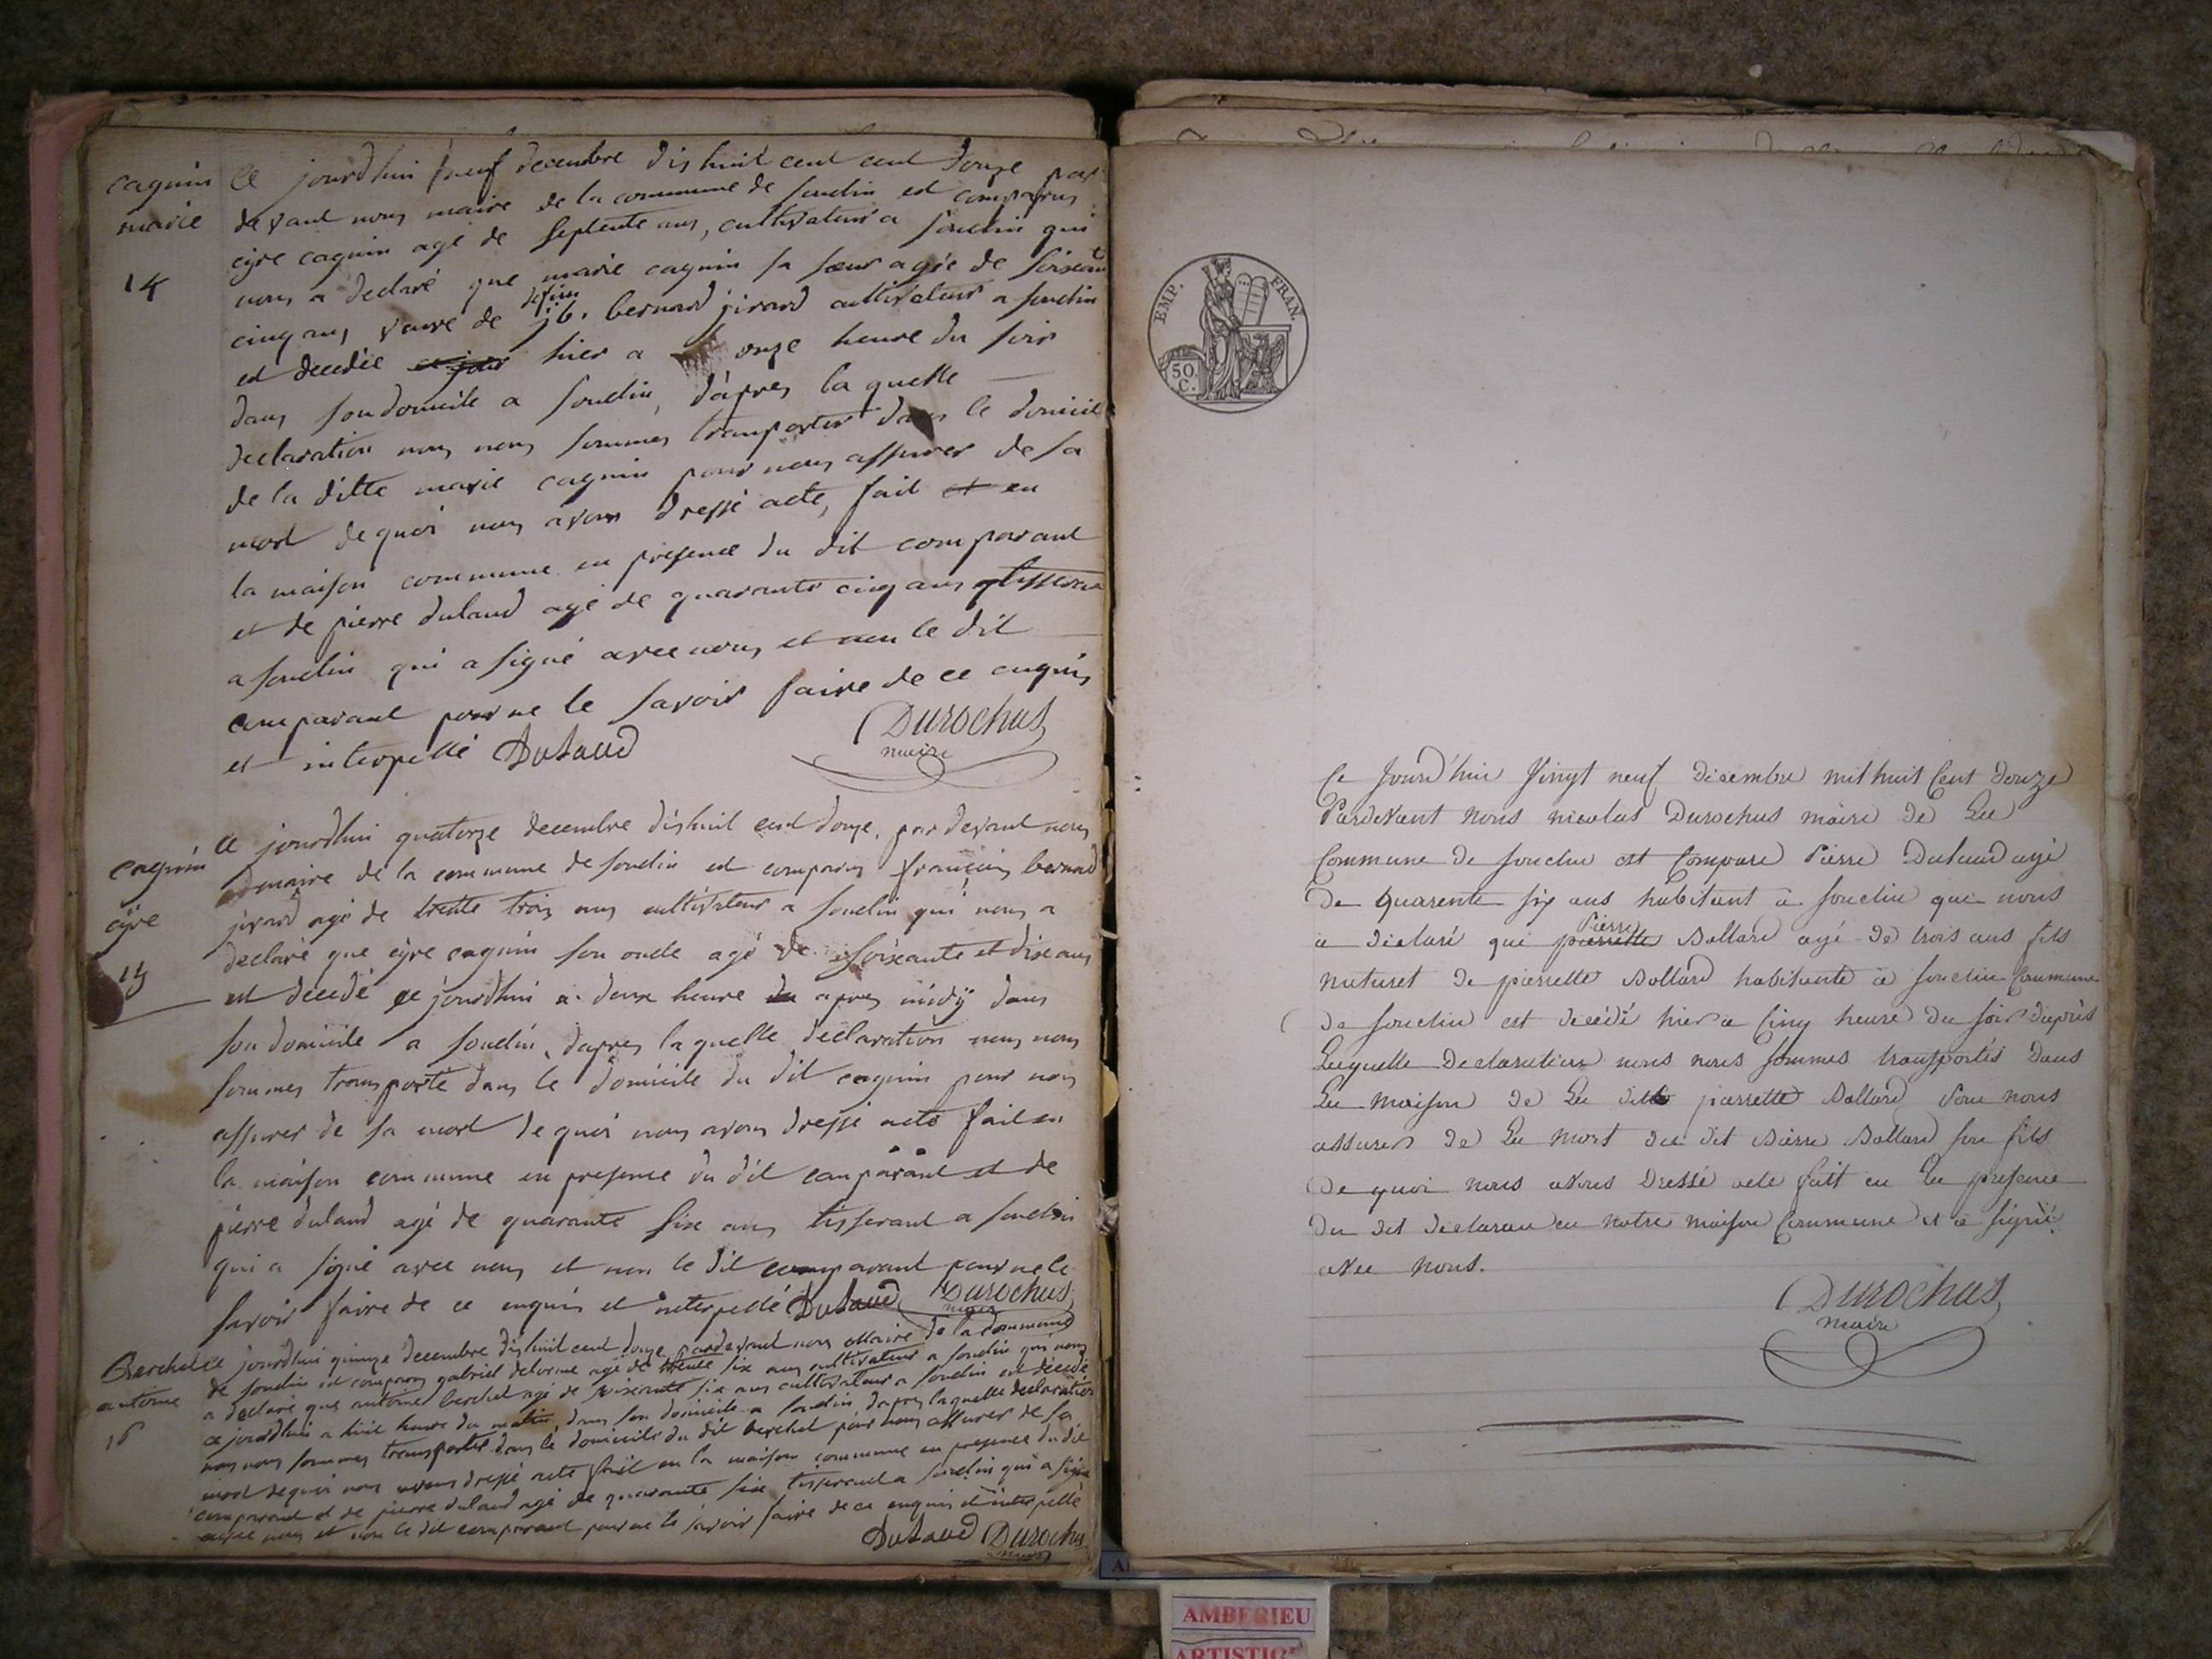 cagnin
marie
14
Ce jourdhui neuf decembre dis huit cent cent douze par
devant nous maire de la commune de souclin est comparus
cyre cagnin agé de septente ans, cultivateur a souclin qui
nous a declaré que marie cagnin sa sœur agée de soixante
cinq ans veuve de defun j.b. bernard jirard cultivateur a souclin
est decedée ce jour hier a onze heure du soir
dans son domicile a souclin, d'apres la quelle
declaration nous nous sommes transporter dans le domicil
de la ditte marie cagnin pour nous assurer de sa
mort de quoi nous avons dressé acte, fait et en
la maison commune en presence du dit comparant
et de pierre dulaud agé de quarante cinq ans tisseran
a souclin qui a signé avec nous et non le dit
comparant pour ne le savoir faire de ce enquis
et interpellé Dutaud Durochas
maire
cagnin
cyre
15
Ce jourdhui quatorze decembre dishuit cent douze, par devant nous
maire de la commune de souclin est comparus françois bernard
jirard agé de trente trois ans cultivateur a souclin qui nous a
declaré que cyre cagnin son oncle agé de soixante et dix ans
est decedé ce jourdhui a deux heure du apres midÿ dans
son domicile a souclin, dapres la quelle declaration nous nous
sommes transporté dans le domicile du dit cagnin pour nous
assurer de sa mort de quoi nous avons dressé acte fait en
la maison commune en presence du dit comparant et de
pierre dulaud agé de quarante six ans tisserant a souclin
qui a signé avec nous et non le dit comparant pour ne le
savoir faire de ce enquis et interpellé Dutaud Durochas
maire
Berchet
antoine
16
Ce jourdhui quinze decembre dishuit cent douze pardevant nous Maire de la commune
de souclin est comparus gabriel delorme agé de trente six ans cultivateur a souclin qui nous
a declaré que antoine berchet agé de soixante six ans cultivateur a souclin est décedé
ce jourdhui a huit heure du matin, dans son domicile a souclin, dapres laquelle declaration
nous nous sommes transporter dans le domicile du dit berchet pour nous assurer de sa
mort de quoi nous avons dressé acte fait en la maison commune en presence du dit
comparant et de pierre dulaud agé de quarante six tisserant a souclin qui a signé
avec nous et non le dit comparant pour ne le savoir faire de ce enquis et interpellé
Dutaud Durochas
maire
EMP. FRAN.
50.
C.
Ce Jourd'hui Vingt neuf Décembre mil huit Cent douze
Pardevant nous nicolas Durochas maire de La
Commune de souclin est Comparu Pierre Dutaud agé
de quarente six ans habitant à souclin qui nous
a déclaré que Pierre pierrette Ballard agé de trois ans fils
naturel de pierrette Ballard habitante à souclin Commune
de souclin est décédé hier a Cinq heure du soir d'après
Laquelle Declaration nous nous sommes transportés dans
La maison de La ditte pierrette Ballard Pour nous
assurer de La mort du dit Pierre Ballard son fils
de quoi nous avons Dressé acte fait en La presence
du dit declaran en notre maison Commune et a signé
avec nous.
Durochas
maire
AMBERIEU
ARTISTIQ